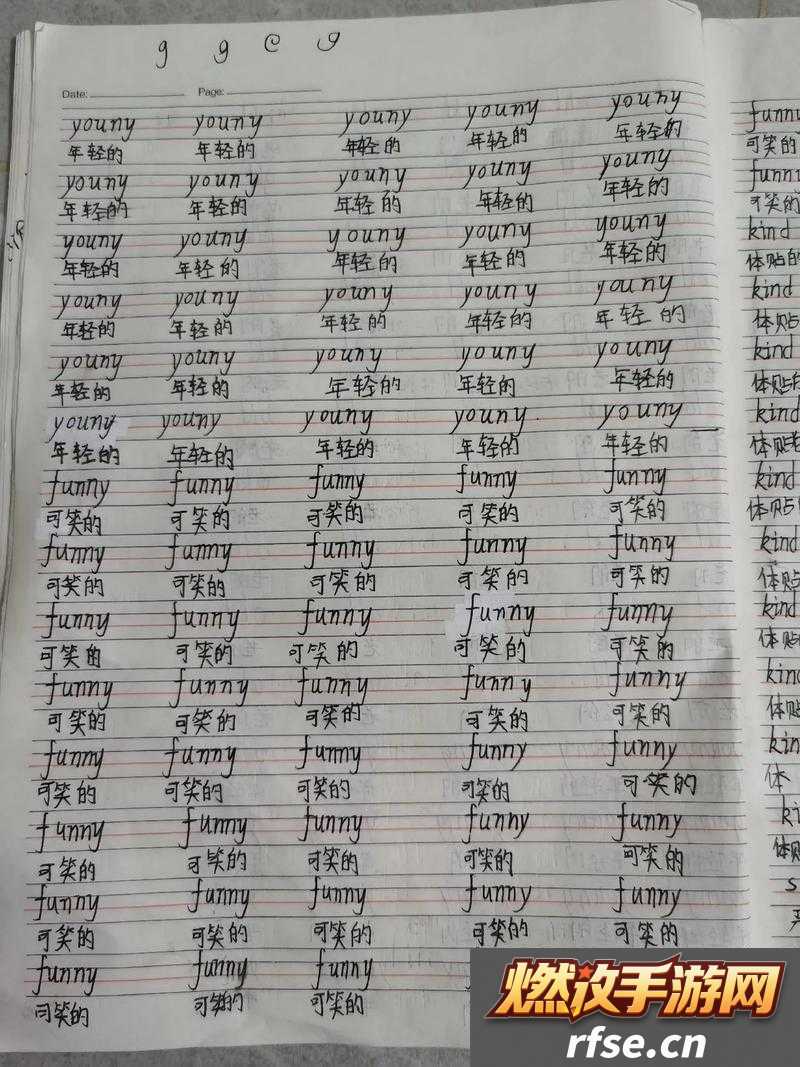 g g e g
Date: Page:
youny youny youny youny youny
年轻的 年轻的 年轻的 年轻的 年轻的
youny youny youny youny youny
年轻的 年轻的 年轻的 年轻的 年轻的
youny youny youny youny youny
年轻的 年轻的 年轻的 年轻的 年轻的
youny youny youny youny youny
年轻的 年轻的 年轻的 年轻的 年轻的
youny youny youny youny youny
年轻的 年轻的 年轻的 年轻的 年轻的
youny youny youny youny youny
年轻的 年轻的 年轻的 年轻的 年轻的
funny funny funny funny funny
可笑的 可笑的 可笑的 可笑的 可笑的
funny funny funny funny funny
可笑的 可笑的 可笑的 可笑的 可笑的
funny funny funny funny funny
可笑的 可笑的 可笑的 可笑的 可笑的
funny funny funny funny funny
可笑的 可笑的 可笑的 可笑的 可笑的
funny funny funny funny funny
可笑的 可笑的 可笑的 可笑的 可笑的
funny funny funny funny funny
可笑的 可笑的 可笑的 可笑的 可笑的
funny funny funny funny funny
可笑的 可笑的 可笑的 可笑的 可笑的
funny funny funny
可笑的 可笑的 可笑的
funny
可笑的
funny
可笑的
kind
体贴的
kind
体贴
kind
体贴的
kind
体贴
kind
体贴
kind
体贴
kind
体贴
kind
体贴
kin
体
ki
体贴
s
燃放手游网
rfse.cn